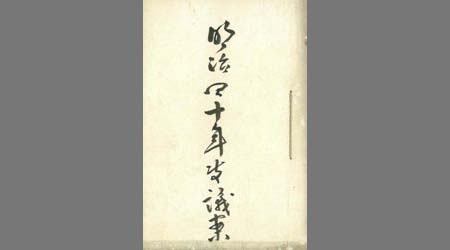 明治四十年度議案